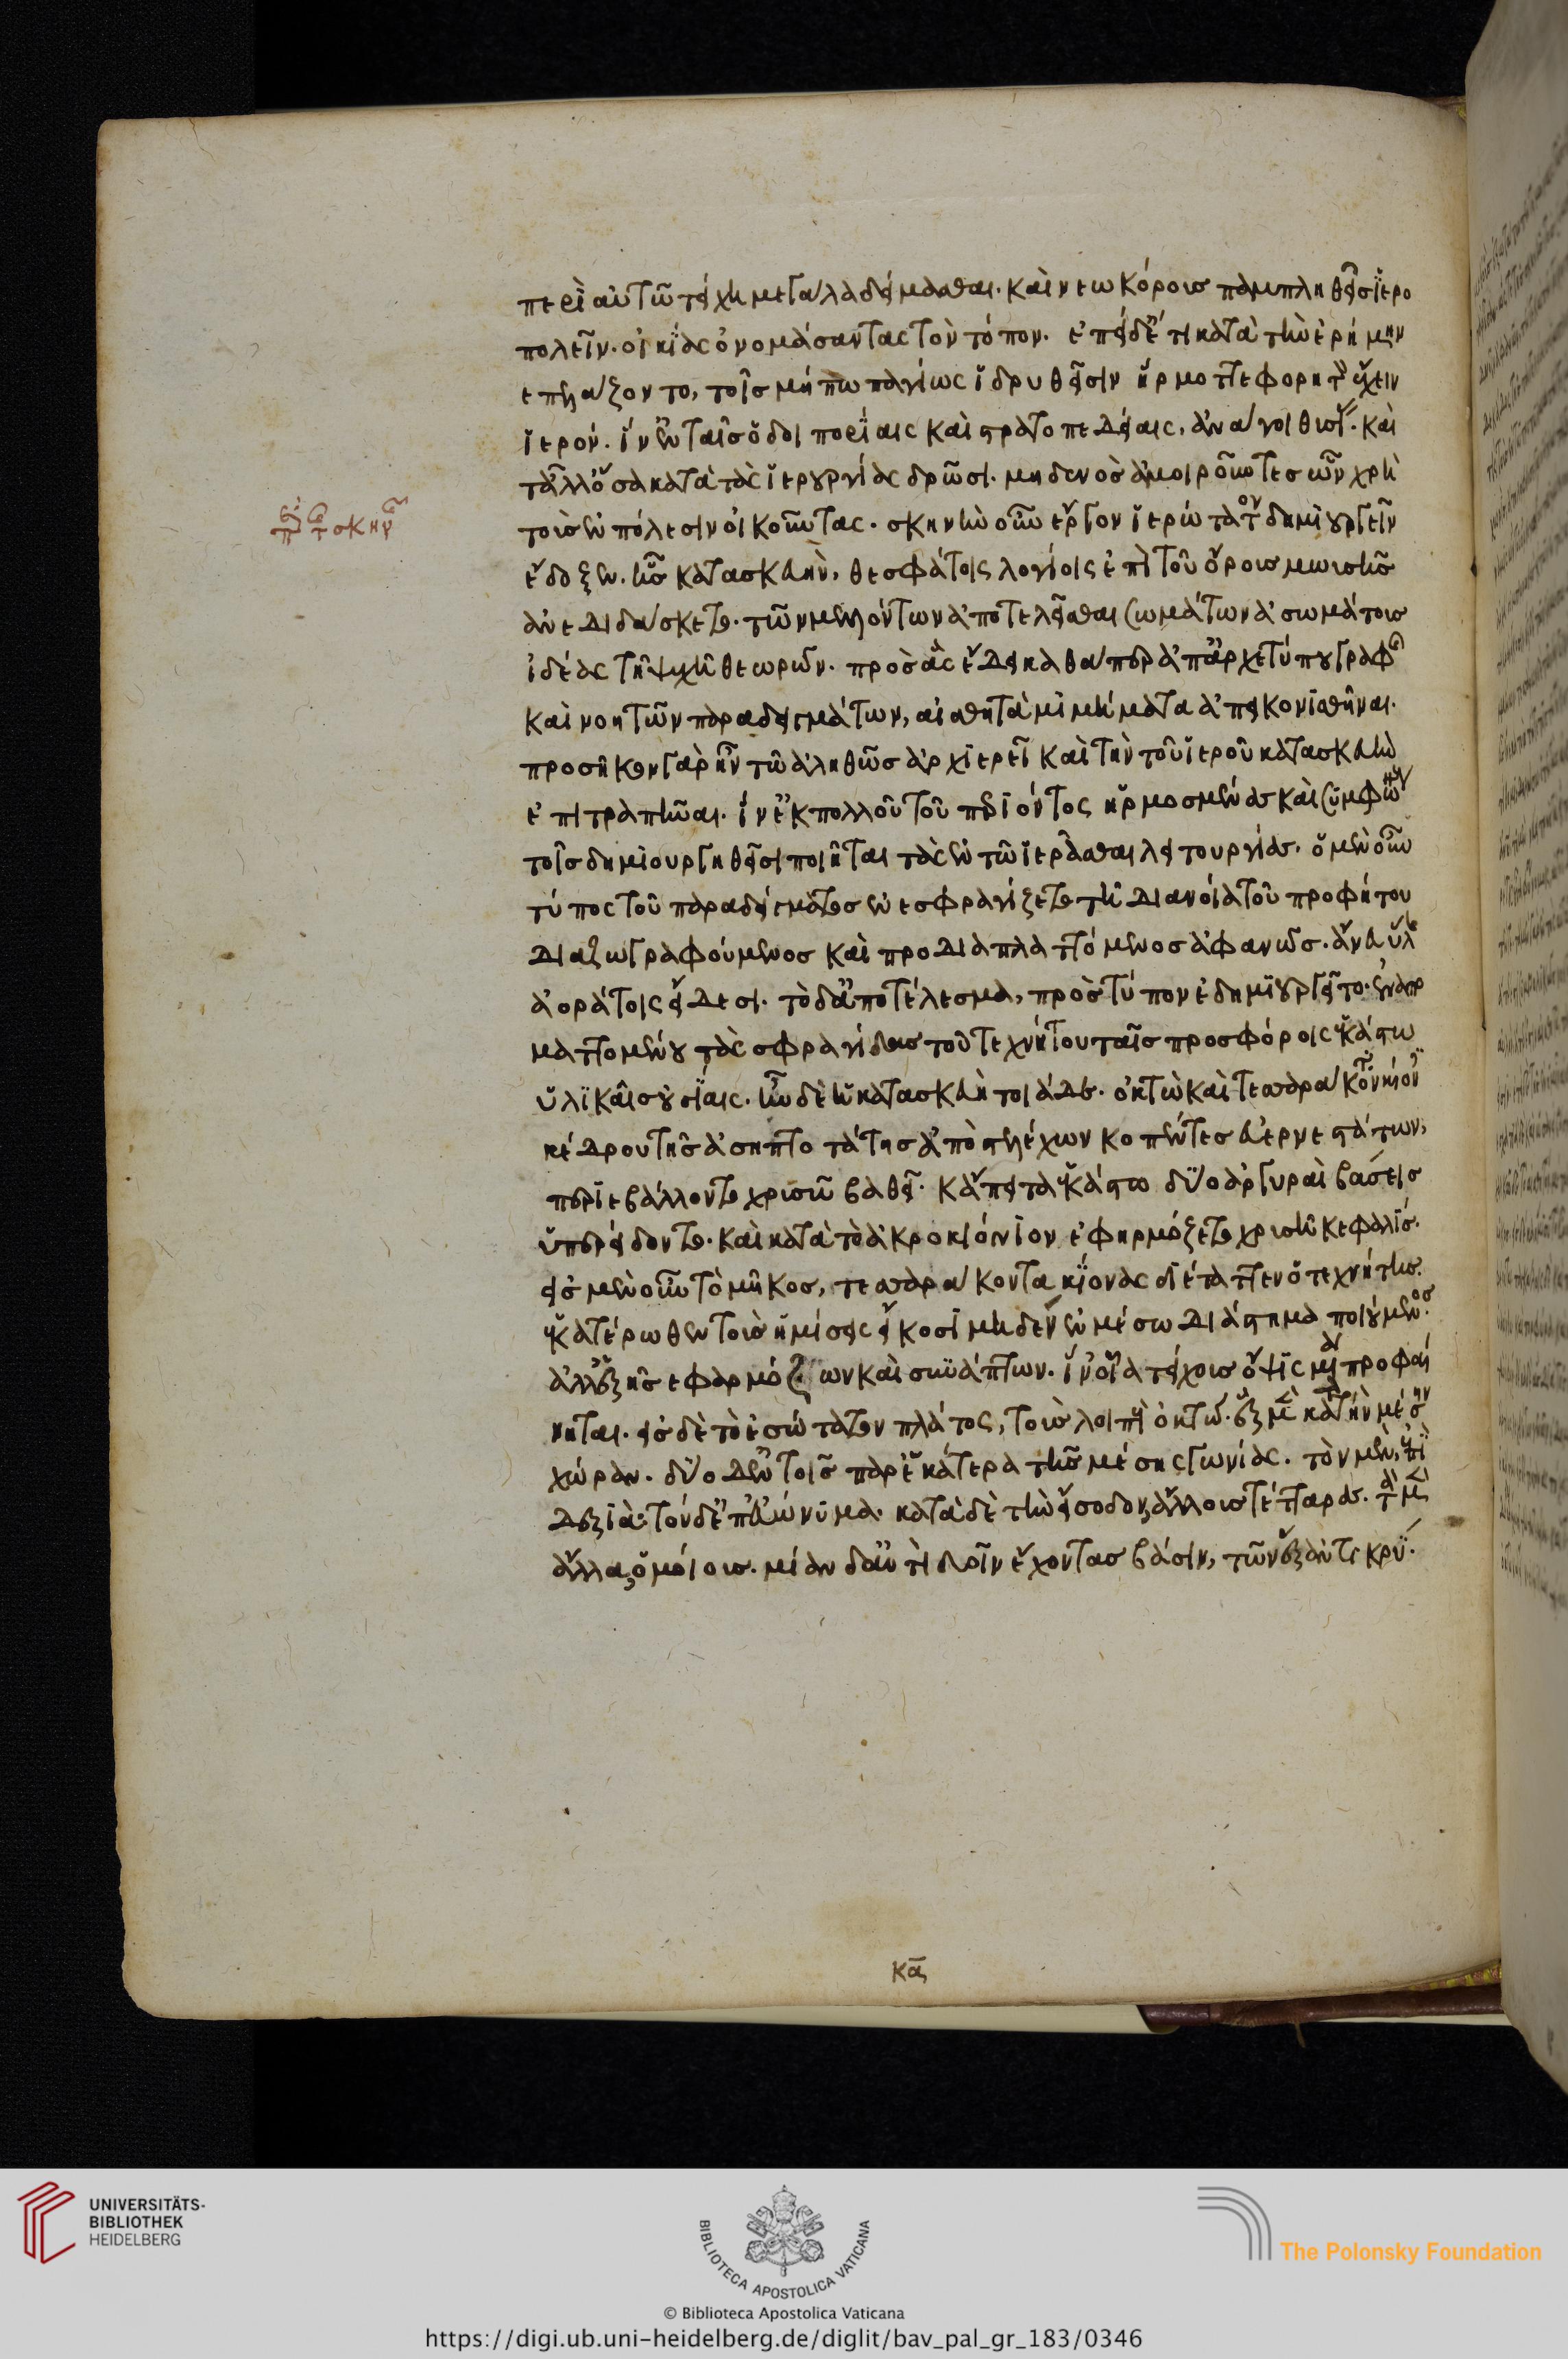 περὶ αὐτῶ τείχη μεγάλα δείμασθαι. καὶ νεωκόροις παμπληθέσιν ἱερο
πολεῖν. οἰκίας ὀνομάσαντας τὸν τόπον. ἐπεὶ δ' ἔτι κατὰ τὴν ἐρήμην
ἐπλάζοντο, τοῖς μήπω παγίως ἱδρυθεῖσιν ἥρμοττε φορητὸν ἔχειν
ἱερόν. ἵν' ἐν ταῖς ὁδοιπορίαις καὶ στρατοπεδείαις, ἀνάγωσι θυσίας. καὶ
τἄλλ' ὅσα κατὰ τὰς ἱερουργίας δρῶσι. μηδενὸς ἀμοιροῦντες ὧν χρὴ
τοὺς ἐν πόλεσιν οἰκοῦντας. σκηνὴν οὖν ἔργον ἱερώτατον δημιουργεῖν
ἔδοξεν. ἧς κατασκευὴν, θεσφάτοις λογίοις ἐπὶ τοῦ ὄρους μωυσῆς
ἀνεδιδάσκετο. τῶν μελλόντων ἀποτελεῖσθαι σωμάτων ἀσωμάτους
ἰδέας τῆ ψυχῆ θεωρῶν. πρὸς ἃς ἔδει καθάπερ ἀπ' ἀρχετύπου γραφῆς
καὶ νοητῶν παραδειγμάτων, αἰσθητὰ μιμήματα ἀπεικονισθῆναι.
προσῆκεν γὰρ ἦν τῶ ἀληθῶς ἀρχιερεῖ καὶ τὴν τοῦ ἱεροῦ κατασκευὴν
ἐπιτραπῆναι. ἵν' ἐκ πολλοῦ τοῦ περιόντος ἡρμοσμένας καὶ συμφώνους
τοῖς δημιουργηθεῖσι ποιῆται τὰς ἐν τῶ ἱερᾶσθαι λειτουργίας. ὁ μὲν οὖν
τύπος τοῦ παραδείγματος ἐνεσφραγίζετο τῆ διανοία τοῦ προφήτου
διαζωγραφούμενος καὶ προδιαπλαττόμενος ἀφανῶς. ἄνευ ὕλης
ἀοράτοις εἴδεσι. τὸ δ' ἀποτέλεσμα, πρὸς τύπον ἐδημιουργεῖτο. ἐναπο
ματτομένου τὰς σφραγίδας τοῦ τεχνίτου ταῖς προσφόροις ἑκάστω
ὑλικαῖς οὐσίαις. ἦν δὲ ἡ κατασκευὴ τοιάδε. ὀκτὼ καὶ τεσσαράκοντα κίονες
κέδρου τῆς ἀσηπτοτάτης ἀπὸ στελέχων κοπέντες εὐερνεστάτων,
περιεβάλλοντο χρυσῶ βαθεῖ. κἄπειτα ἑκάστω δύο ἀργυραῖ βάσεις
ὑπερείδοντο. καὶ κατὰ τὸ ἀκροκιόνιον ἐφηρμόζετο χρυσῆ κεφαλίς.
εἰς μὲν οὖν τὸ μῆκος, τεσσαράκοντα κίονας διέταττεν ὁ τεχνίτης.
ἑκατέρωθεν τοὺς ἡμίσεις εἴκοσι μηδὲν ἐν μέσω διάστημα ποιούμενος.
ἀλλ' ἑξῆς ἐφαρμόζων καὶ συνάπτων. ἵν' οἷα τείχους ὄψις μία προφαί
νηται. εἰς δὲ τὸ ἐσώτατον πλάτος, τοὺς λοιποὺς ὀκτώ. ἓξ μὲν κατὰ τὴν μέσην
χώραν. δύο δ' ἐν τοῖς παρ' ἑκάτερα τῆς μέσης γωνίας. τὸν μὲν, ἐπὶ
δεξιὰ. τὸν δ' ἐπ' εὐώνυμα. κατὰ δὲ τὴν εἴσοδον, ἄλλους τέτταρας. τὰ μὲν
ἄλλα, ὁμοίους. μίαν δ' ἀντὶ δυοῖν ἔχοντας βάσιν, τῶν ἐξ ἀντικρύ.
περὶ τῆς σκηνῆς
UNIVERSITÄTS-
BIBLIOTHEK
HEIDELBERG
BIBLIOTECA APOSTOLICA VATICANA
The Polonsky Foundation
© Biblioteca Apostolica Vaticana
https://digi.ub.uni-heidelberg.de/diglit/bav_pal_gr_183/0346